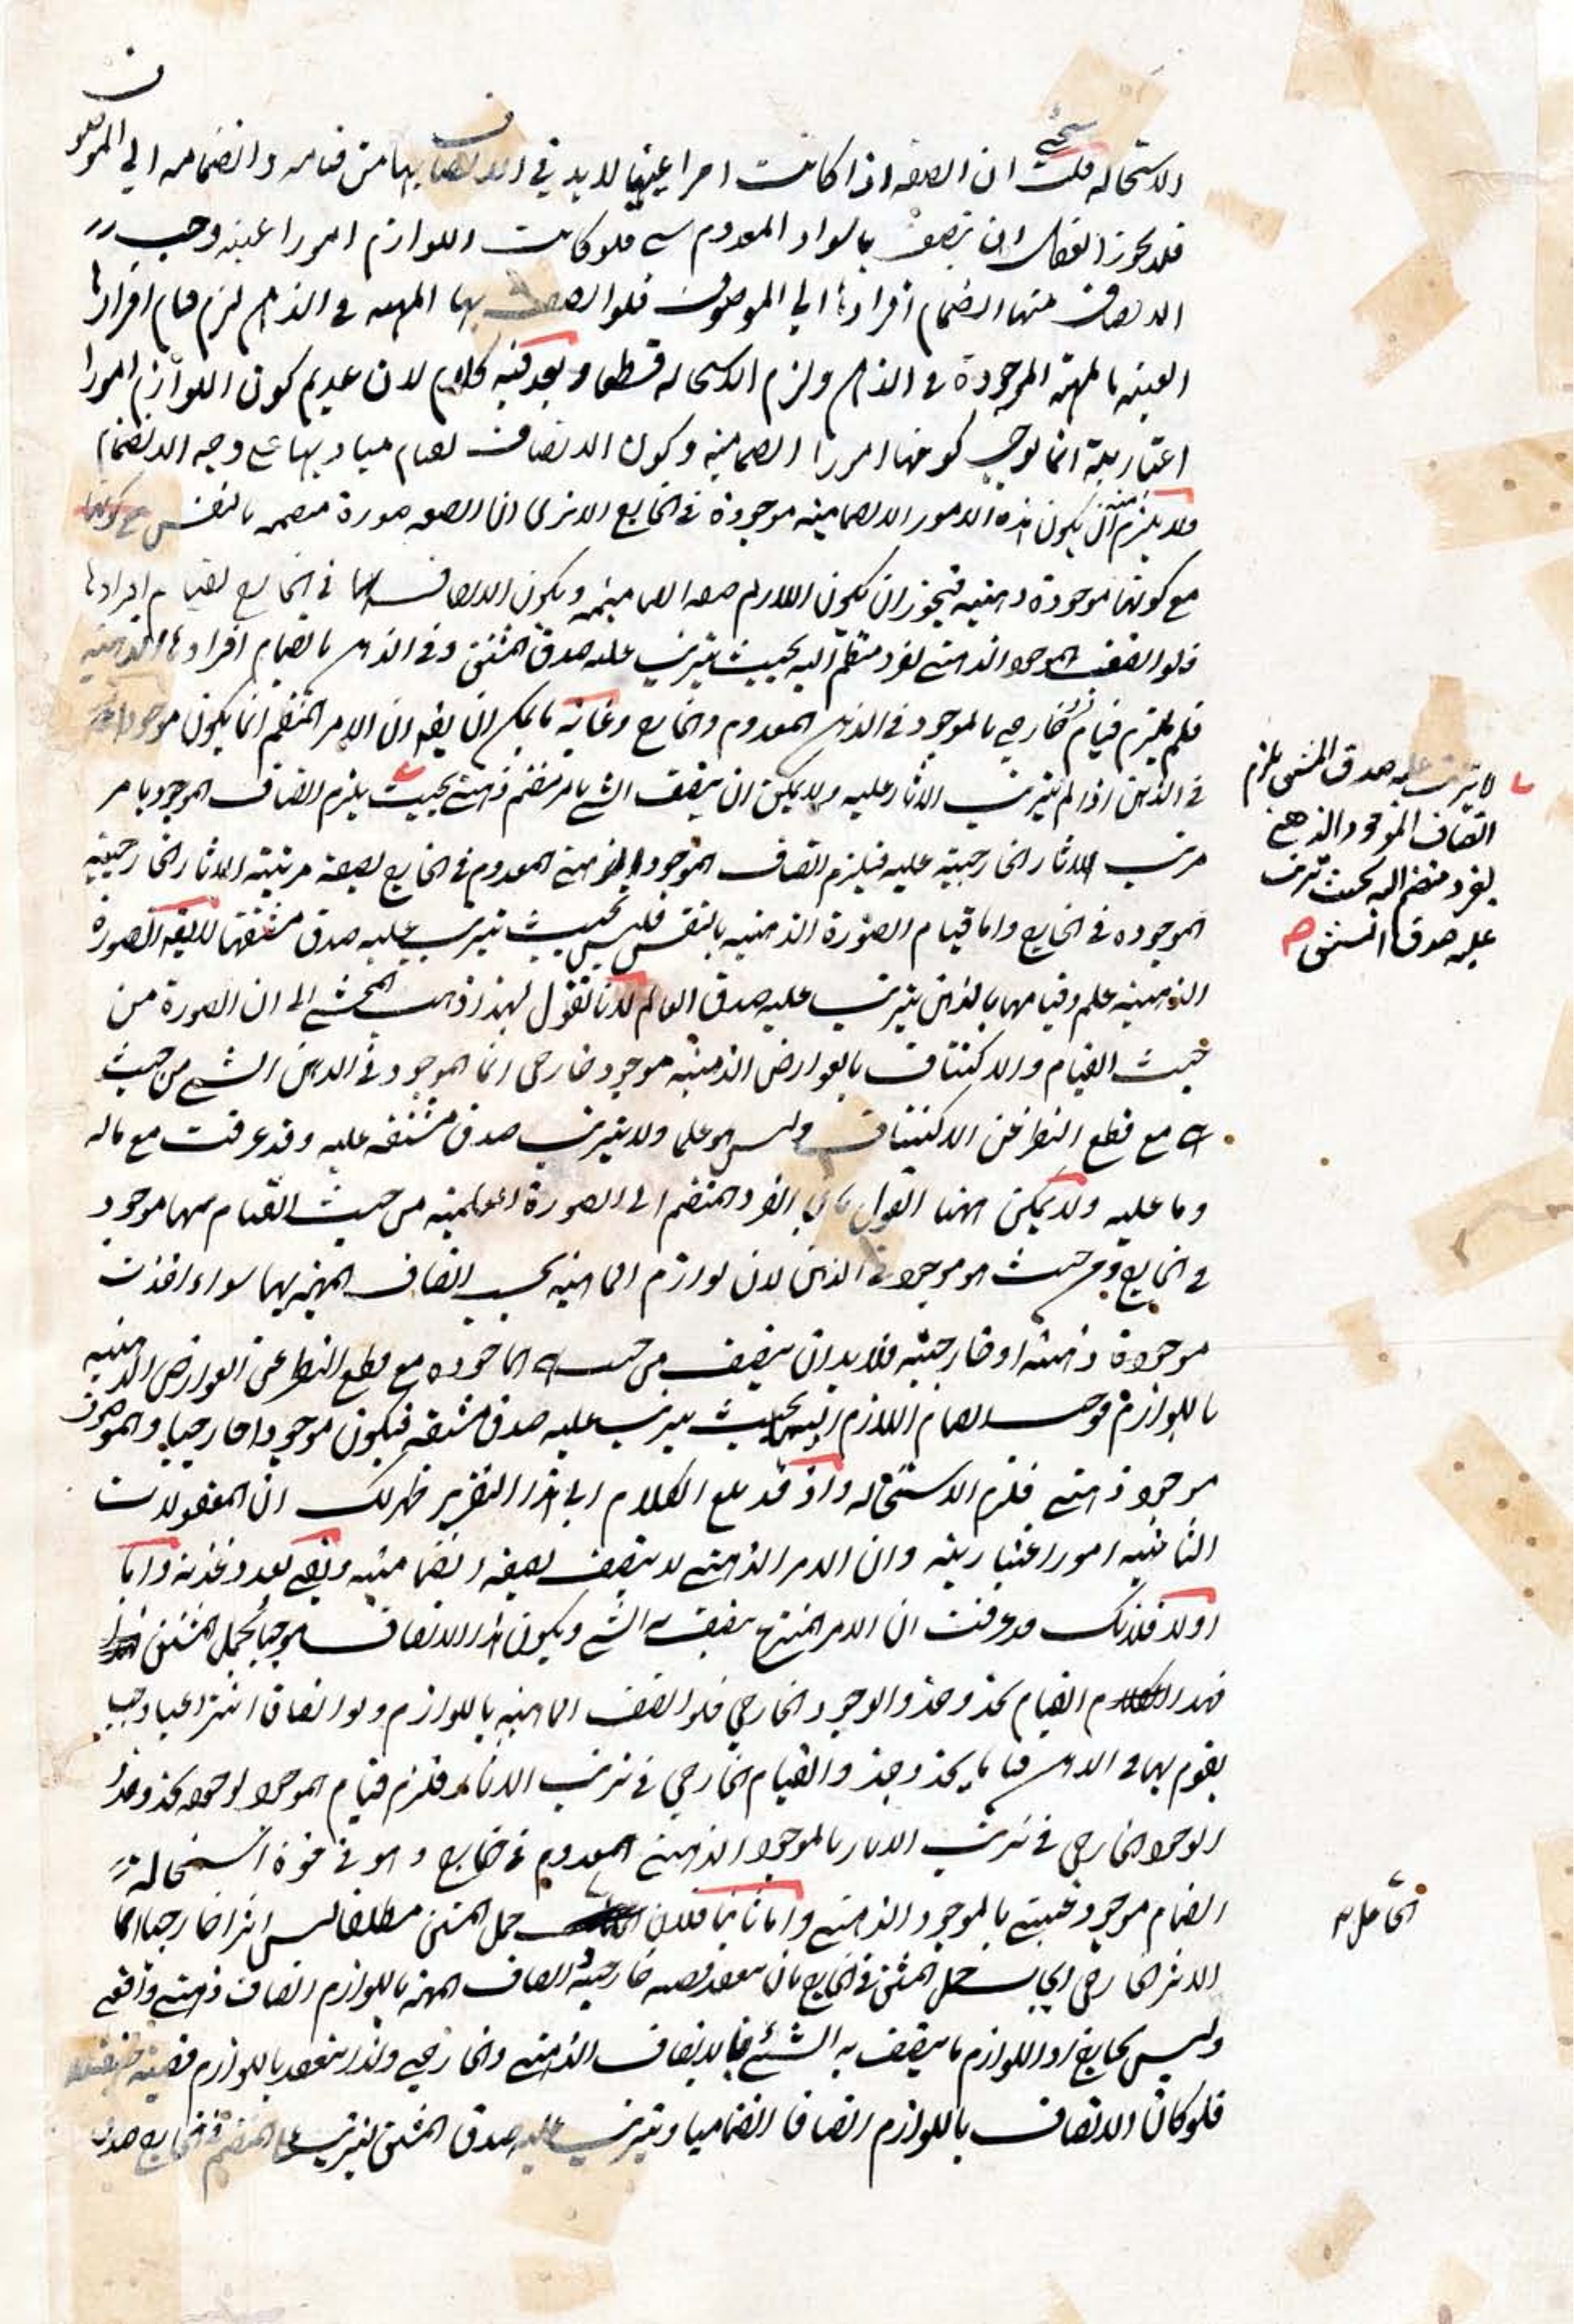 الاستحالة قلت ان الصفة اذا كانت امرا عينيا لا بد في الاتصاف بها من قيامه وانضمامه الى الموصوف
فلا يجوز العقل ان يتصف بالسواد المعدوم شيء فلو كانت اللوازم امورا عينية وجب
الاتصاف منها انضمام افرادها الى الموصوف فلو اتصفت بها المهية في الذهن لزم قيام افرادها
العينية بالمهية الموجودة في الذهن ولزم الاستحالة قطعا وبعد فيه كلام لان عدم كون اللوازم امورا
اعتبارية انما يوجب كونها امورا انضمامية وكون الاتصاف لقيام مباديها على وجه الانضمام
ولا يلزم منه ان يكون هذه الامور الانضمامية موجودة في الخارج الا ترى ان الصورة منضمة بالنفس
مع كونها موجودة ذهنية فيجوز ان يكون اللازم صفة انضمامية ويكون الاتصاف بها في الخارج لقيام افرادها
فلو اتصف الموجود الذهني بفرد منضم اليه بحيث يترتب عليه صدق المشتق وفي الذهن بانضمام افرادها الذهنية
فلم يلزم قيام خارجي بالموجود في الذهن المعدوم في الخارج وغاية ما يمكن ان يقال ان الامر المنضم انما يكون موجودا
في الذهن اذا لم يترتب الاثار عليه ولا يمكن ان يتصف الشيء بامر منضم ذهني بحيث يلزم اتصاف الموجود بامر
مرتب الاثار الخارجية عليه فيلزم اتصاف الموجود الذهني المعدوم في الخارج بصفة مرتبة الاثار الخارجية
الموجوده في الخارج واما قيام الصورة الذهنية بالنفس فليس بحيث يترتب عليه صدق مشتقها لا يقال الصورة
الذهنية علم وقيامها بالذهن يترتب عليه صدق العالم لانا نقول لهذا ذهب المحشي الى ان الصورة من
حيث القيام والاكتناف بالعوارض الذهنية موجود خارجي انما الموجود في الذهن الشيء من حيث
هي مع قطع النظر عن الاكتناف وليس هو علما ولا يترتب صدق مشتقه عليه وقد عرفت مع ماله
وما عليه ولا يمكن ههنا القول بان الفرد المنضم الى الصورة العلمية من حيث القيام بها موجود
في الخارج ومن حيث هو موجود في الذهن لان لوازم الماهية يجب اتصاف المهية بها سواء اخذت
موجودة ذهنية او خارجية فلا بد ان يتصف من حيث هي الماخوذه مع قطع النظر عن العوارض الذهنية
باللوازم فوجب انضمام اللازم اليها بحيث يترتب عليه صدق مشتقه فيكون موجودا خارجيا والموصوف
موجود ذهني فلزم الاستحاله واذ قد بلغ الكلام الى هذا التقرير ظهر لك ان المعقولات
الثانية امور اعتبارية وان الامر الذهني لا يتصف بصفة انضمامية وبقي بعد دغدغة واما
اولا فلانك قد عرفت ان الامر المنتزع يتصف به الشيء ويكون هذا الاتصاف موجبا لحمل المشتق
فهذا القيام يحذو حذو الوجود الخارجي فلو اتصف الماهية باللوازم ولو اتصافا انتزاعيا وجب
يقوم بها في الذهن قياما يحذو حذو القيام الخارجي في ترتب الاثار فلزم قيام الموجود بوجود يحذو حذو
الوجود الخارجي في ترتب الاثار بالموجود الذهني المعدوم في خارج وهو في قوة استحالة
انضمام موجود عيني بالموجود الذهني واما ثانيا فلان حمل المشتق مطلقا ليس اثرا خارجيا انما
الاثر الخارجي ايجاب حمل المشتق في الخارج بان ينعقد قضية خارجية واتصاف المهية باللوازم اتصاف ذهني واقعي
وليس بخارج اذ اللوازم ما يتصف به الشيء بالاتصاف الذهني والخارجي ولذا ينعقد باللوازم قضية حقيقية
فلو كان الاتصاف باللوازم اتصافا انضماميا ويترتب عليه صدق المشتق ليترتب على المنضم في الخارج صدق
لا يترتب عليه صدق المشتق يلزم
اتصاف الموجود الذهني
بفرد منضم اليه بحيث يترتب
عليه صدق المشتق صح
الحاصل